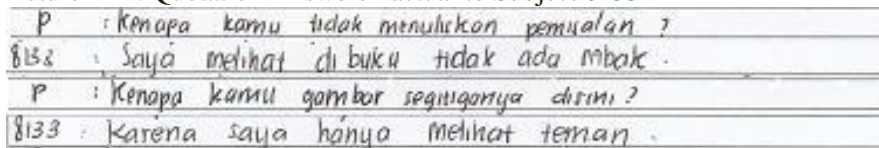 P : Kenapa kamu tidak menuliskan pemisalan ?
8132 : Saya melihat di buku tidak ada mbak.
P : Kenapa kamu gambar segitiganya disini ?
8133 : Karena saya hanya melihat teman.